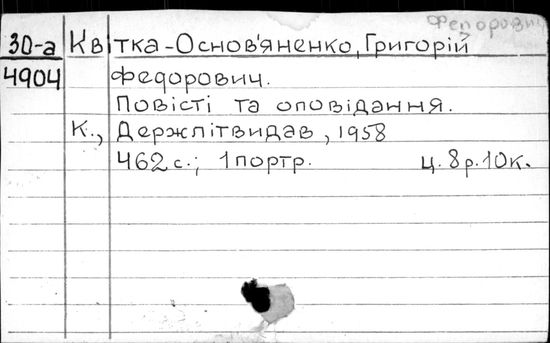 Федорович
30-а Квітка-Основ'яненко, Григорій
4904 Федорович.
Повісті та оповідання.
К., Держлітвидав, 1958
462 с.; 1 портр. ц. 8 р. 10 к.